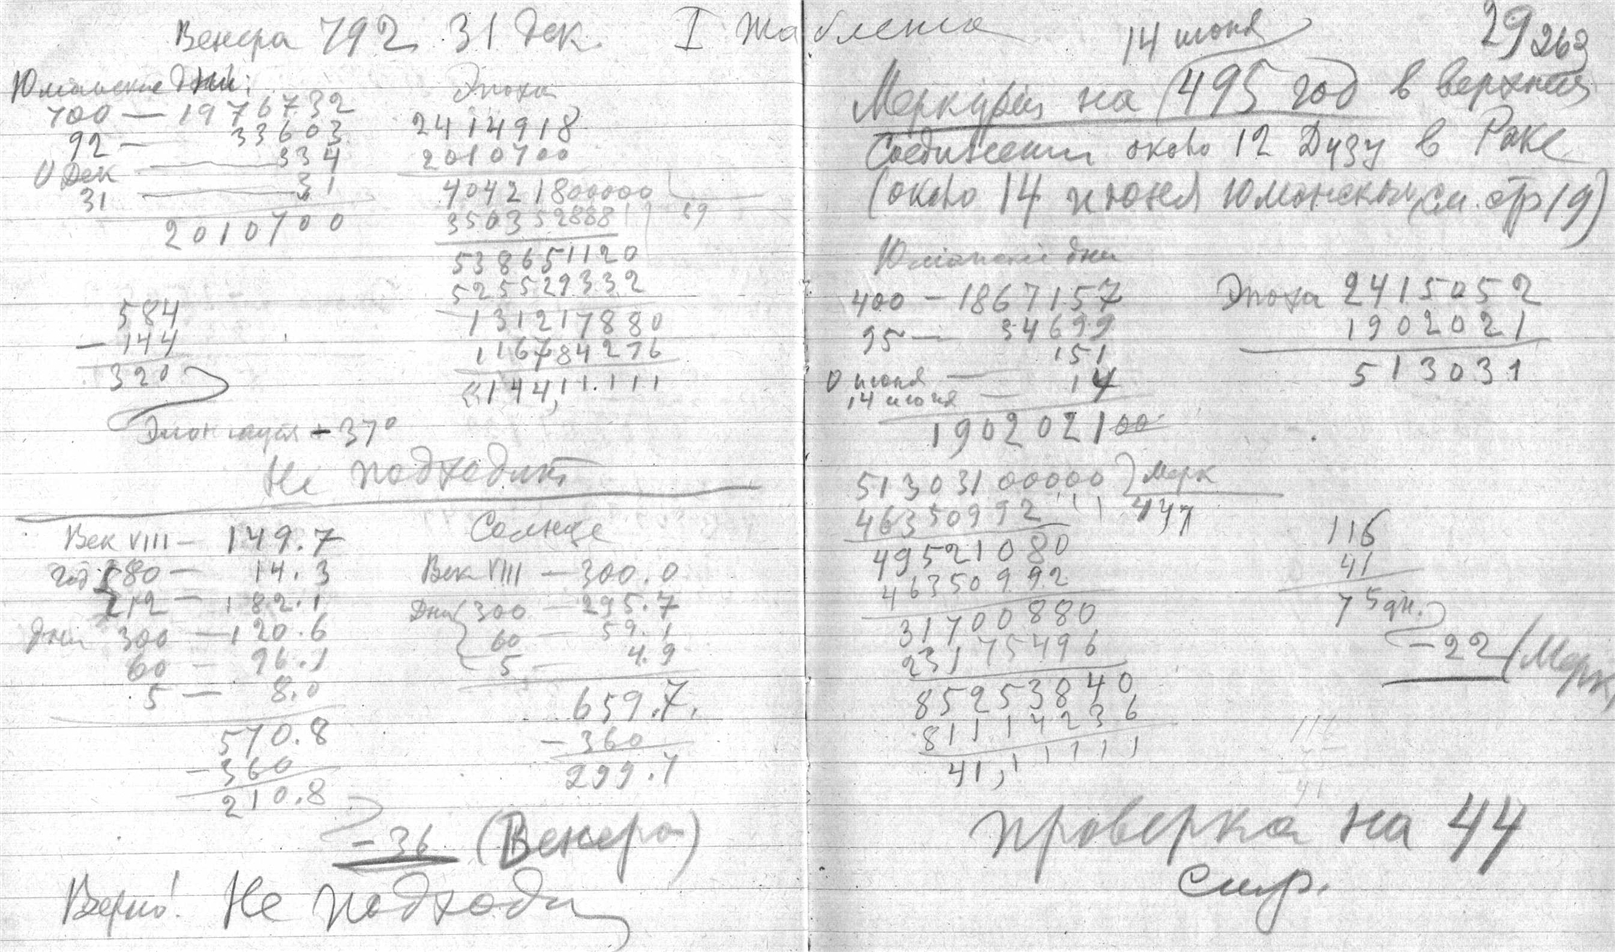 Венера 792 31 Дек. I Таблица
Юлианские дни:
700 — 1976732
92 — 33603
0 Дек — 334
31 — 31
2010700
Эпоха
2414918
2010700
40421800000
350352888
538651120
525529332
131217880
116784276
144,11.111
584
— 144
320
Элонгация - 37°
Не подходит
Век VIII — 149.7
год 80 — 14.3
212 — 182.1
Дни 300 — 120.6
60 — 96.1
5 — 8.0
570.8
- 360
210.8
Солнце
Век VIII — 300.0
Дни 300 — 295.7
60 — 59.1
5 — 4.9
659.7.
- 360
299.7
- 36 (Венера)
Верно! Не подходит
29 263
14 июня
Меркурий на 495 год в верхнем
Соединении около 12 Дузу в Раке
(около 14 июня Юлианского, см. стр 19)
Юлианские дни
400 — 1867157
95 — 34699
0 июня — 151
14 июня — 14
190202100
Эпоха 2415052
1902021
513031
51303100000 Мерк
46350992 447
49521080
46350992
31700880
23175496
85253840
81114236
41,11111
116
41
75 дн.
- 22 (Мерк)
проверка на 44
стр.